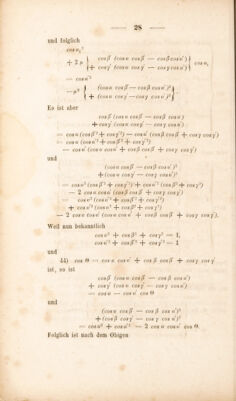 — 28 —
und folglich
cos v₁²
+ 2 μ { cos β' (cos α cos β' — cos β cos α') + cos γ' (cos α cos γ' — cos γ cos α') } cos v₁
= cos α'²
— μ² { (cos α cos β' — cos β cos α')² + (cos α cos γ' — cos γ cos α')² }
Es ist aber
cos β' (cos α cos β' — cos β cos α')
+ cos γ' (cos α cos γ' — cos γ cos α')
= cos α (cos β'² + cos γ'²) — cos α' (cos β cos β' + cos γ cos γ')
= cos α (cos α'² + cos β'² + cos γ'²)
— cos α' (cos α cos α' + cos β cos β' + cos γ cos γ')
und
(cos α cos β' — cos β cos α')²
+ (cos α cos γ' — cos γ cos α')²
= cos α² (cos β'² + cos γ'²) + cos α'² (cos β² + cos γ²)
— 2 cos α cos α' (cos β cos β' + cos γ cos γ')
= cos α² (cos α'² + cos β'² + cos γ'²)
+ cos α'² (cos α² + cos β² + cos γ²)
— 2 cos α cos α' (cos α cos α' + cos β cos β' + cos γ cos γ').
Weil nun bekanntlich
cos α² + cos β² + cos γ² = 1,
cos α'² + cos β'² + cos γ'² = 1
und
44) cos Θ = cos α cos α' + cos β cos β' + cos γ cos γ'
ist, so ist
cos β' (cos α cos β' — cos β cos α')
+ cos γ' (cos α cos γ' — cos γ cos α')
= cos α — cos α' cos Θ
und
(cos α cos β' — cos β cos α')²
+ (cos α cos γ' — cos γ cos α')²
= cos α² + cos α'² — 2 cos α cos α' cos Θ.
Folglich ist nach dem Obigen